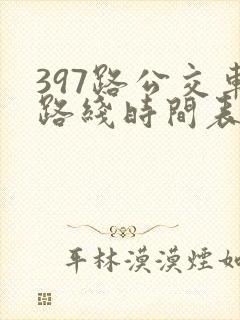 397路公交車
路綫時間表
平林漠漠煙如